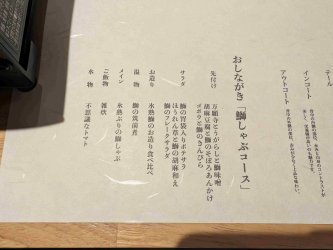 テール
インコート
アウトコート
おしながき「鰤しゃぶコース」
先付け
万願寺とうがらしと鰤味噌
胡麻豆腐と鰤のそぼろあんかけ
ゴボウと鰤のきんぴら
サラダ
鰤の胃袋入りポテサラ
ほうれん草と鰤の胡麻和え
鰤のフレークサラダ
お造り
氷熟鰤のお造り食べ比べ
温物
鰤の筑前煮
メイン
氷熟ぶりの鰤しゃぶ
ご飯物
雑炊
水物
不思議なトマト